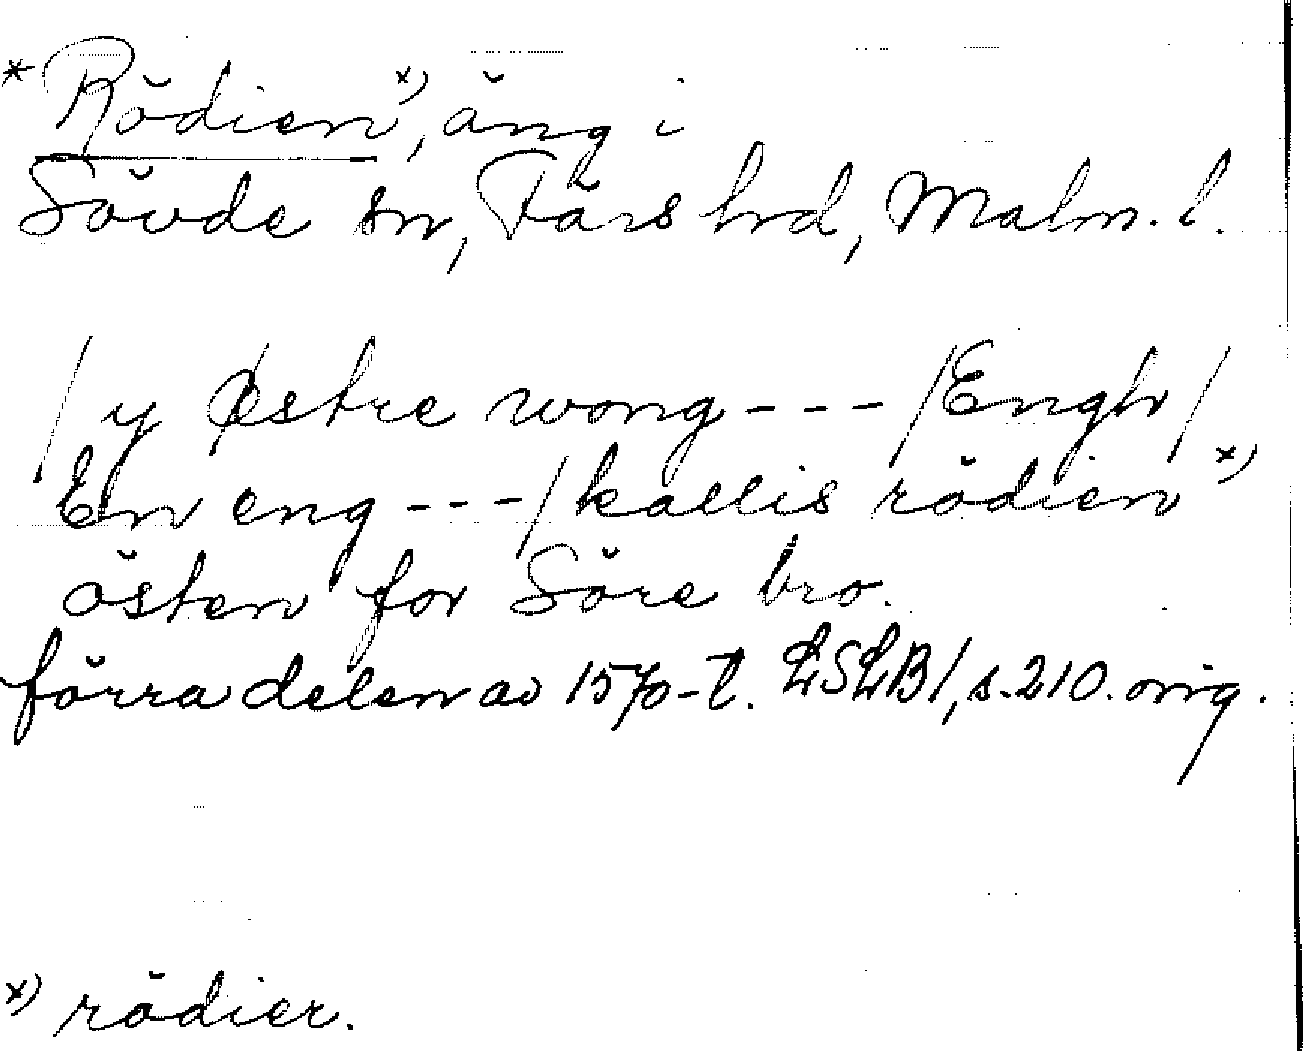 * Rödien x), äng i
Sövde sn, Färs hrd, Malm. l.
/ y Østre wong - - - / Engh /
En eng - - - / kallis rödien x)
östen for Söre bro.
förra delen av 1570-t. LSLB 1, s. 210. orig.
x) rödier.